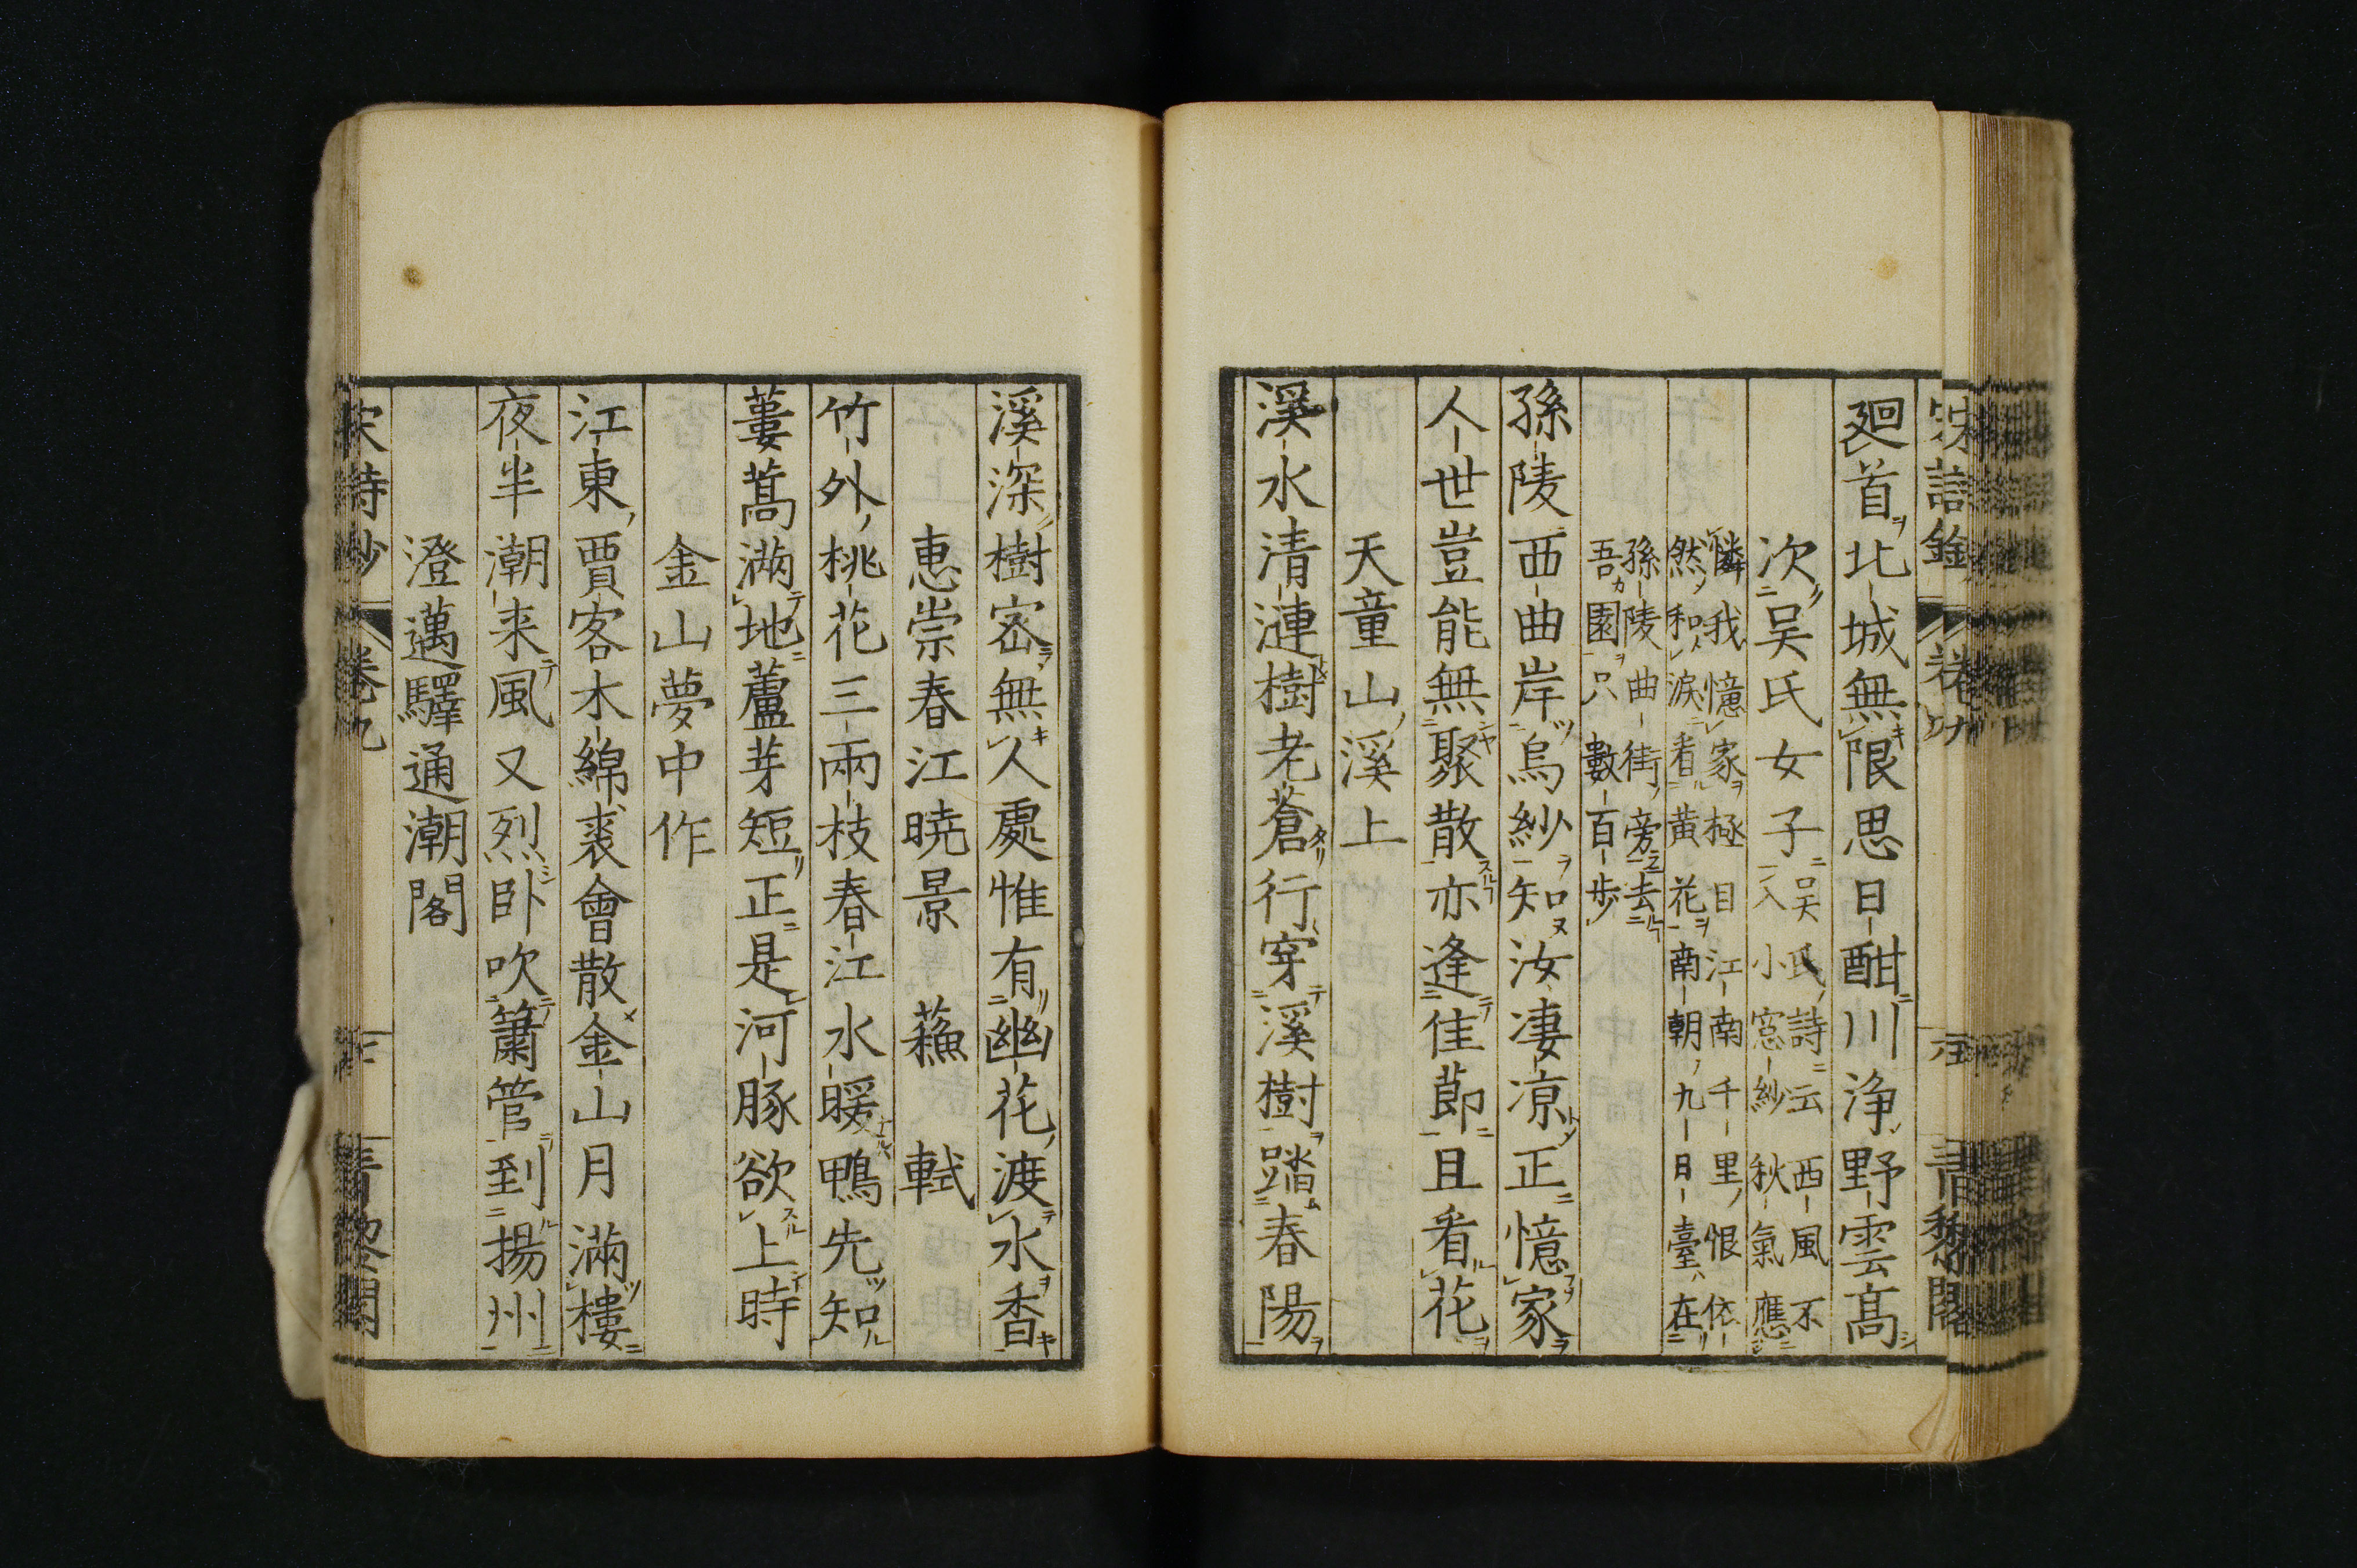 廻首北城無限思日酣川浄野雲高
次吴氏女子
吴氏詩云西風不
入小窓紗秋氣應
憐我憶家極目江南千里恨依
然和淚看黄花南朝九日臺在
孫陵曲街旁去
吾園只數百歩
孫陵西曲岸烏紗知汝凄凉正憶家
人世豈能無聚散亦逢佳莭且看花
天童山溪上
溪水清漣樹老蒼行穿溪樹踏春陽
溪深樹宻無人處惟有幽花渡水香
惠崇春江曉景 蘓軾
竹外桃花三兩枝春江水暖鴨先知
蔞蒿滿地蘆芽短正是河豚欲上時
金山夢中作
江東賈客木綿裘會散金山月滿樓
夜半潮来風又烈卧吹簫管到揚州
澄邁驛通潮閣
宋詩鈔 卷九 青黎閣